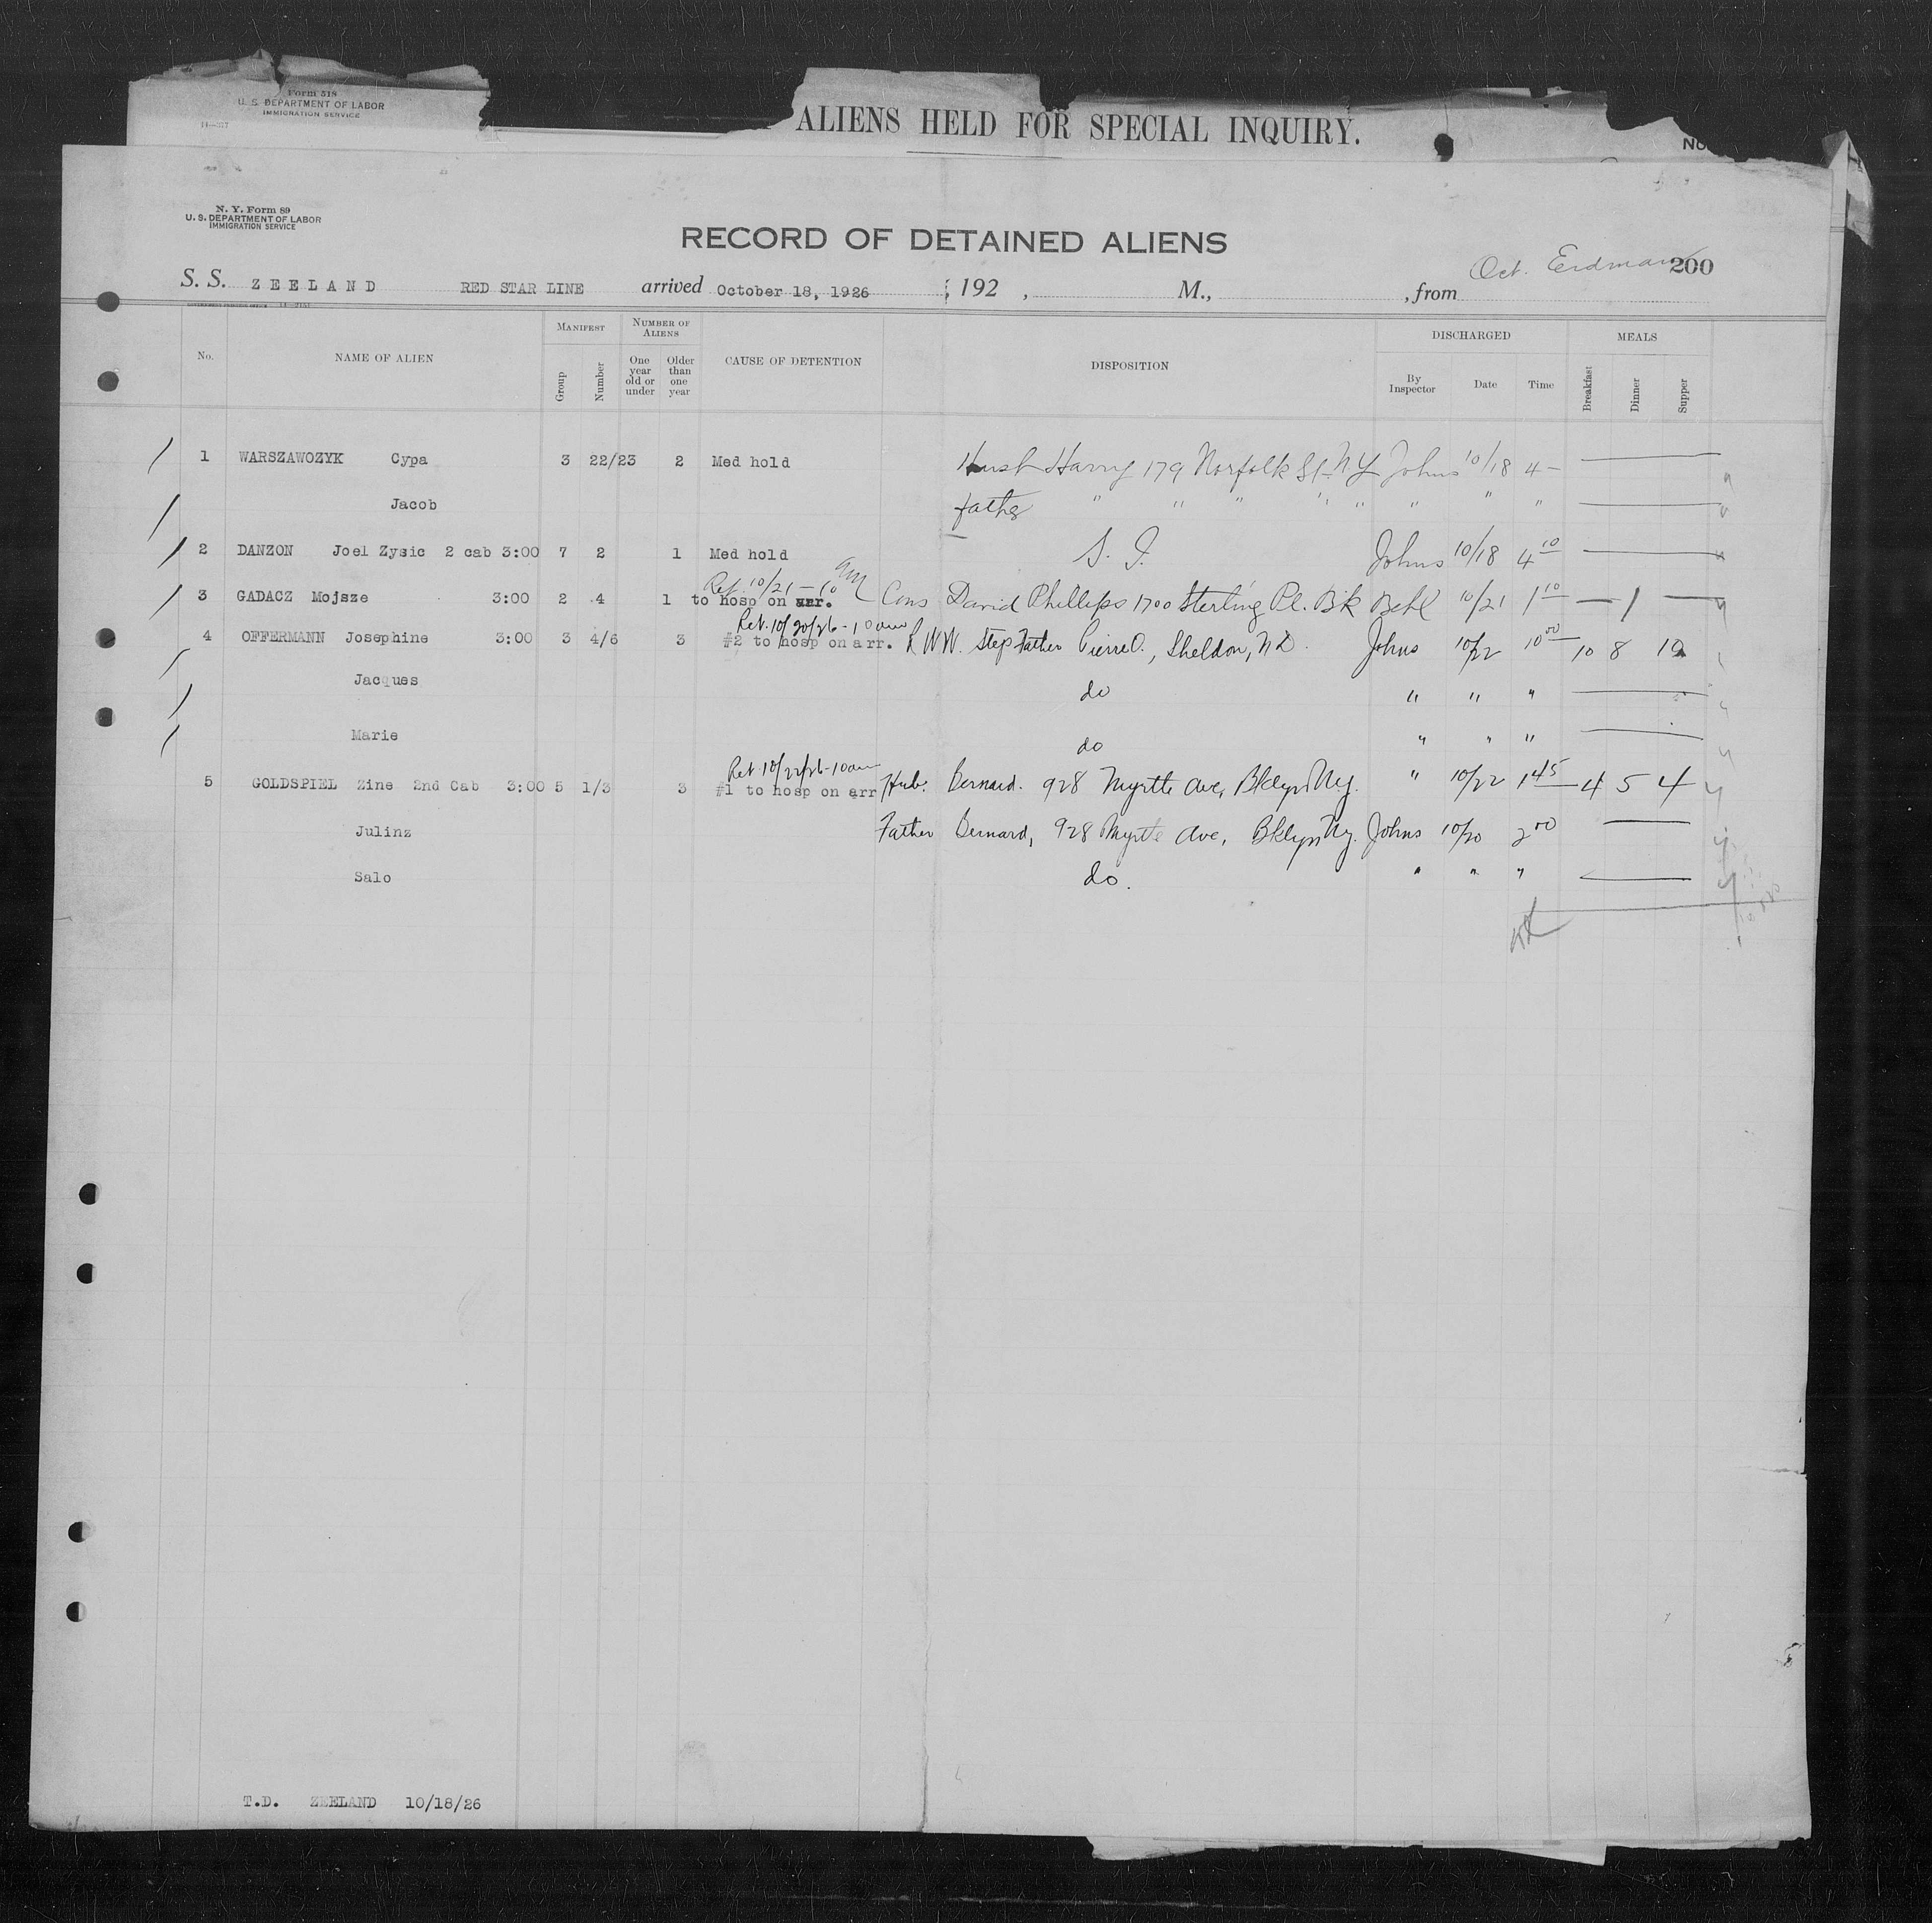 Form 518
U. S. DEPARTMENT OF LABOR
IMMIGRATION SERVICE
14—377
ALIENS HELD FOR SPECIAL INQUIRY.
No
N. Y. Form 89
U. S. DEPARTMENT OF LABOR
IMMIGRATION SERVICE
RECORD OF DETAINED ALIENS
Oct. Erdman 200
S. S. ZEELAND RED STAR LINE arrived October 18, 1926, 192 , M., , from
No. NAME OF ALIEN MANIFEST Group Number NUMBER OF ALIENS One year old or under Older than one year CAUSE OF DETENTION DISPOSITION DISCHARGED By Inspector Date Time MEALS Breakfast Dinner Supper
1 WARSZAWOZYK Cypa 3 22/23 2 Med hold Husb Harry 179 Norfolk St. N Y Johns 10/18 4 —
Jacob father " " " " " " " "
2 DANZON Joel Zysic 2 cab 3:00 7 2 1 Med hold S. I. Johns 10/18 4 10
Ret. 10/21 — 10 am
3 GADACZ Mojsze 3:00 2 4 1 to hosp on arr. Cons David Phillips 1700 Sterling Pl. Bk Behl 10/21 1 10 — 1 —
Ret. 10/20/26 - 10 am
4 OFFERMANN Josephine 3:00 3 4/6 3 #2 to hosp on arr. Step Father Pierre O., Sheldon, N D. Johns 10/22 10 00 10 8 10
Jacques do " " "
Marie do " " "
Ret 10/22/26 - 10 am
5 GOLDSPIEL Zine 2nd Cab 3:00 5 1/3 3 #1 to hosp on arr Hub. Bernard. 928 Myrtle Ave, Bklyn N.y. " 10/22 1 45 4 5 4
Julinz Father Bernard, 928 Myrtle Ave, Bklyn N.y. Johns 10/20 2 00
Salo do. " " "
T.D. ZEELAND 10/18/26